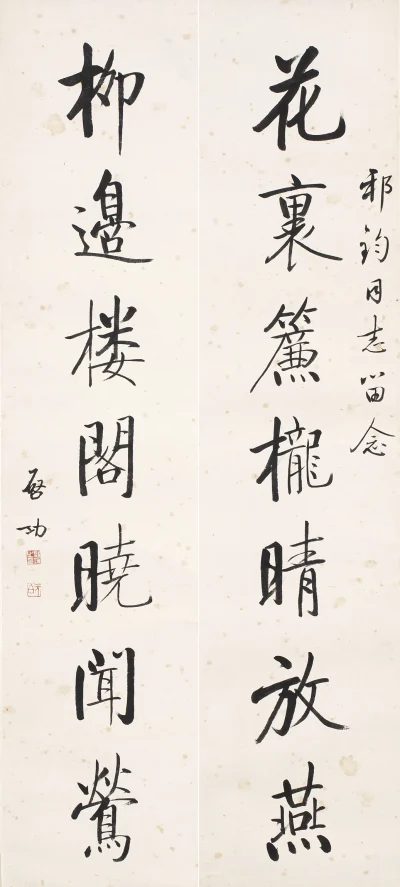 邢鈞同志留念
花裏簾櫳晴放燕
柳邊楼閣曉聞鶯
啓功